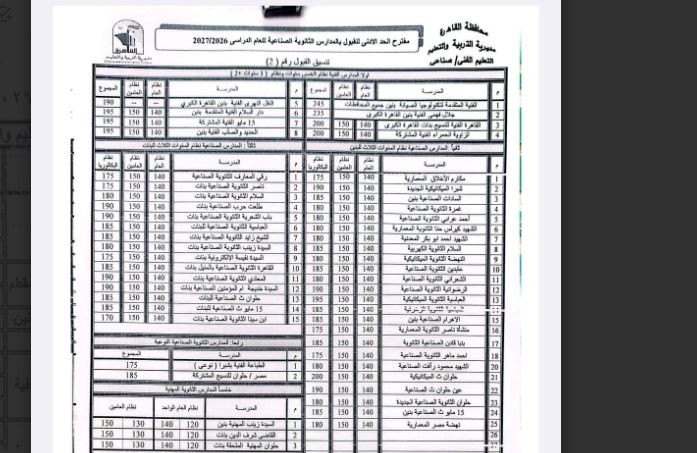 محافظة القاهرة
مديرية التربية والتعليم
التعليم الفني/ صناعي
مقترح الحد الادنى للقبول بالمدارس الثانوية الصناعية للعام الدراسى 2027/2026
تنسيق القبول رقم ( 2 )
اولا المدارس الفنية نظام الخمس سنوات ونظام ( 3 سنوات +2 )
م المدرسة نظام العام نظام العامين المجموع
1 الفنية المتقدمة لتكنولوجيا الصيانة بنين جميع المحافظات 245
2 جلال فهمى الفنية بنين القاهرة الكبرى 235
3 القاهرة الفنية للنسيج بنات القاهرة الكبرى 140 150 200
4 الزاوية الحمراء الفنية المشتركة 140 150 200
م المدرسة نظام العام نظام العامين المجموع
5 النقل النهرى الفنية بنين القاهرة الكبرى -- -- 190
6 دار السلام الفنية المتقدمة بنين 140 150 195
7 15 مايو الفنية المشتركة 140 150 195
8 الحديد والصلب الفنية بنين 140 150 195
ثانياً : المدارس الصناعية نظام السنوات الثلاث للبنين
م المدرسة نظام العام نظام العامين نظام البكالوريا
1 مكارم الأخلاق المعمارية 140 150 175
2 شبرا الميكانيكية الجديدة 140 150 190
3 السادات الصناعية بنين 140 150 185
4 غمرة الثانوية الصناعية 140 150 180
5 أحمد عرابي الثانوية الصناعية 140 150 180
6 الشهيد كيرلس حنا الثانوية المعمارية 140 150 180
7 الشهيد احمد ابو بكر المعدنية 140 150
8 السلام الثانوية الكهربية 140 150 185
9 النهضة الثانوية الميكانيكية 140 150 180
10 عابدين الثانوية الصناعية 140 150 185
11 الشعراني الثانوية الصناعية 140 150 180
12 الرضوانية الثانوية الصناعية 140 150 190
13 العباسية الثانوية الميكانيكية 140 150 195
15 الاهرام الصناعية بنين 140 150 185
16 منشأة ناصر الثانوية المعمارية 140 150 175
17 بابا قادن الثانوية الصناعية 140 150 185
18 احمد ماهر الثانوية الصناعية 140 150 175
20 الشهيد محمود رأفت الصناعية 140 150 180
21 حلوان ث الميكانيكية 140 150 200
22 عين حلوان ث الصناعية 140 150 190
23 حلوان الثانوية الصناعية الجديدة 140 150 180
24 15 مايو ث الصناعية بنين 140 150 185
25 نهضة مصر المعمارية 140 150 180
26
ثالثاً : المدارس الصناعية نظام السنوات الثلاث للبنات
م المدرسة نظام العام نظام العامين نظام البكالوريا
1 رقي المعارف الثانوية الصناعية 140 150 175
2 ناصر الثانوية الصناعية بنات 140 150 175
3 السلام الثانوية الصناعية بنات 140 150 180
4 طلعت حرب الصناعية بنات 140 150 190
5 باب الشعرية الثانوية الصناعية بنات 140 150 190
6 العباسية الثانوية الصناعية بنات 140 150 185
7 الشيخ زايد الثانوية الصناعية بنات 140 150 185
8 السيدة زينب الثانوية الصناعية بنات 140 150 180
9 السيدة نفيسة الالكترونية بنات 140 150 175
10 القاهرة الثانوية الصناعية بالمنيل بنات 140 150 185
11 المعادي الثانوية الصناعية بنات 140 150 190
12 السيدة خديجة أم المؤمنين الصناعية بنات 140 150 190
13 حلوان ث الصناعية للبنات 140 150 185
14 15 مايو ث الصناعية للبنات 140 150 185
15 ابن سينا الثانوية الصناعية بنات 140 150 170
رابعا: المدارس الثانوية الصناعية النوعية
م المدرسة المجموع
1 الطباعة الفنية بشبرا ( نوعي ) 175
2 مصر / حلوان للنسيج المشتركة 185
خامساً المدارس الثانوية المهنية
م المدرسة نظام العام الواحد نظام العامين
1 السيدة زينب المهنية بنين 120 140 130 150
2 القاضى شرف الدين بنات 120 140 130 150
3 حلوان المهنية الملحقة بنات 120 140 130 150